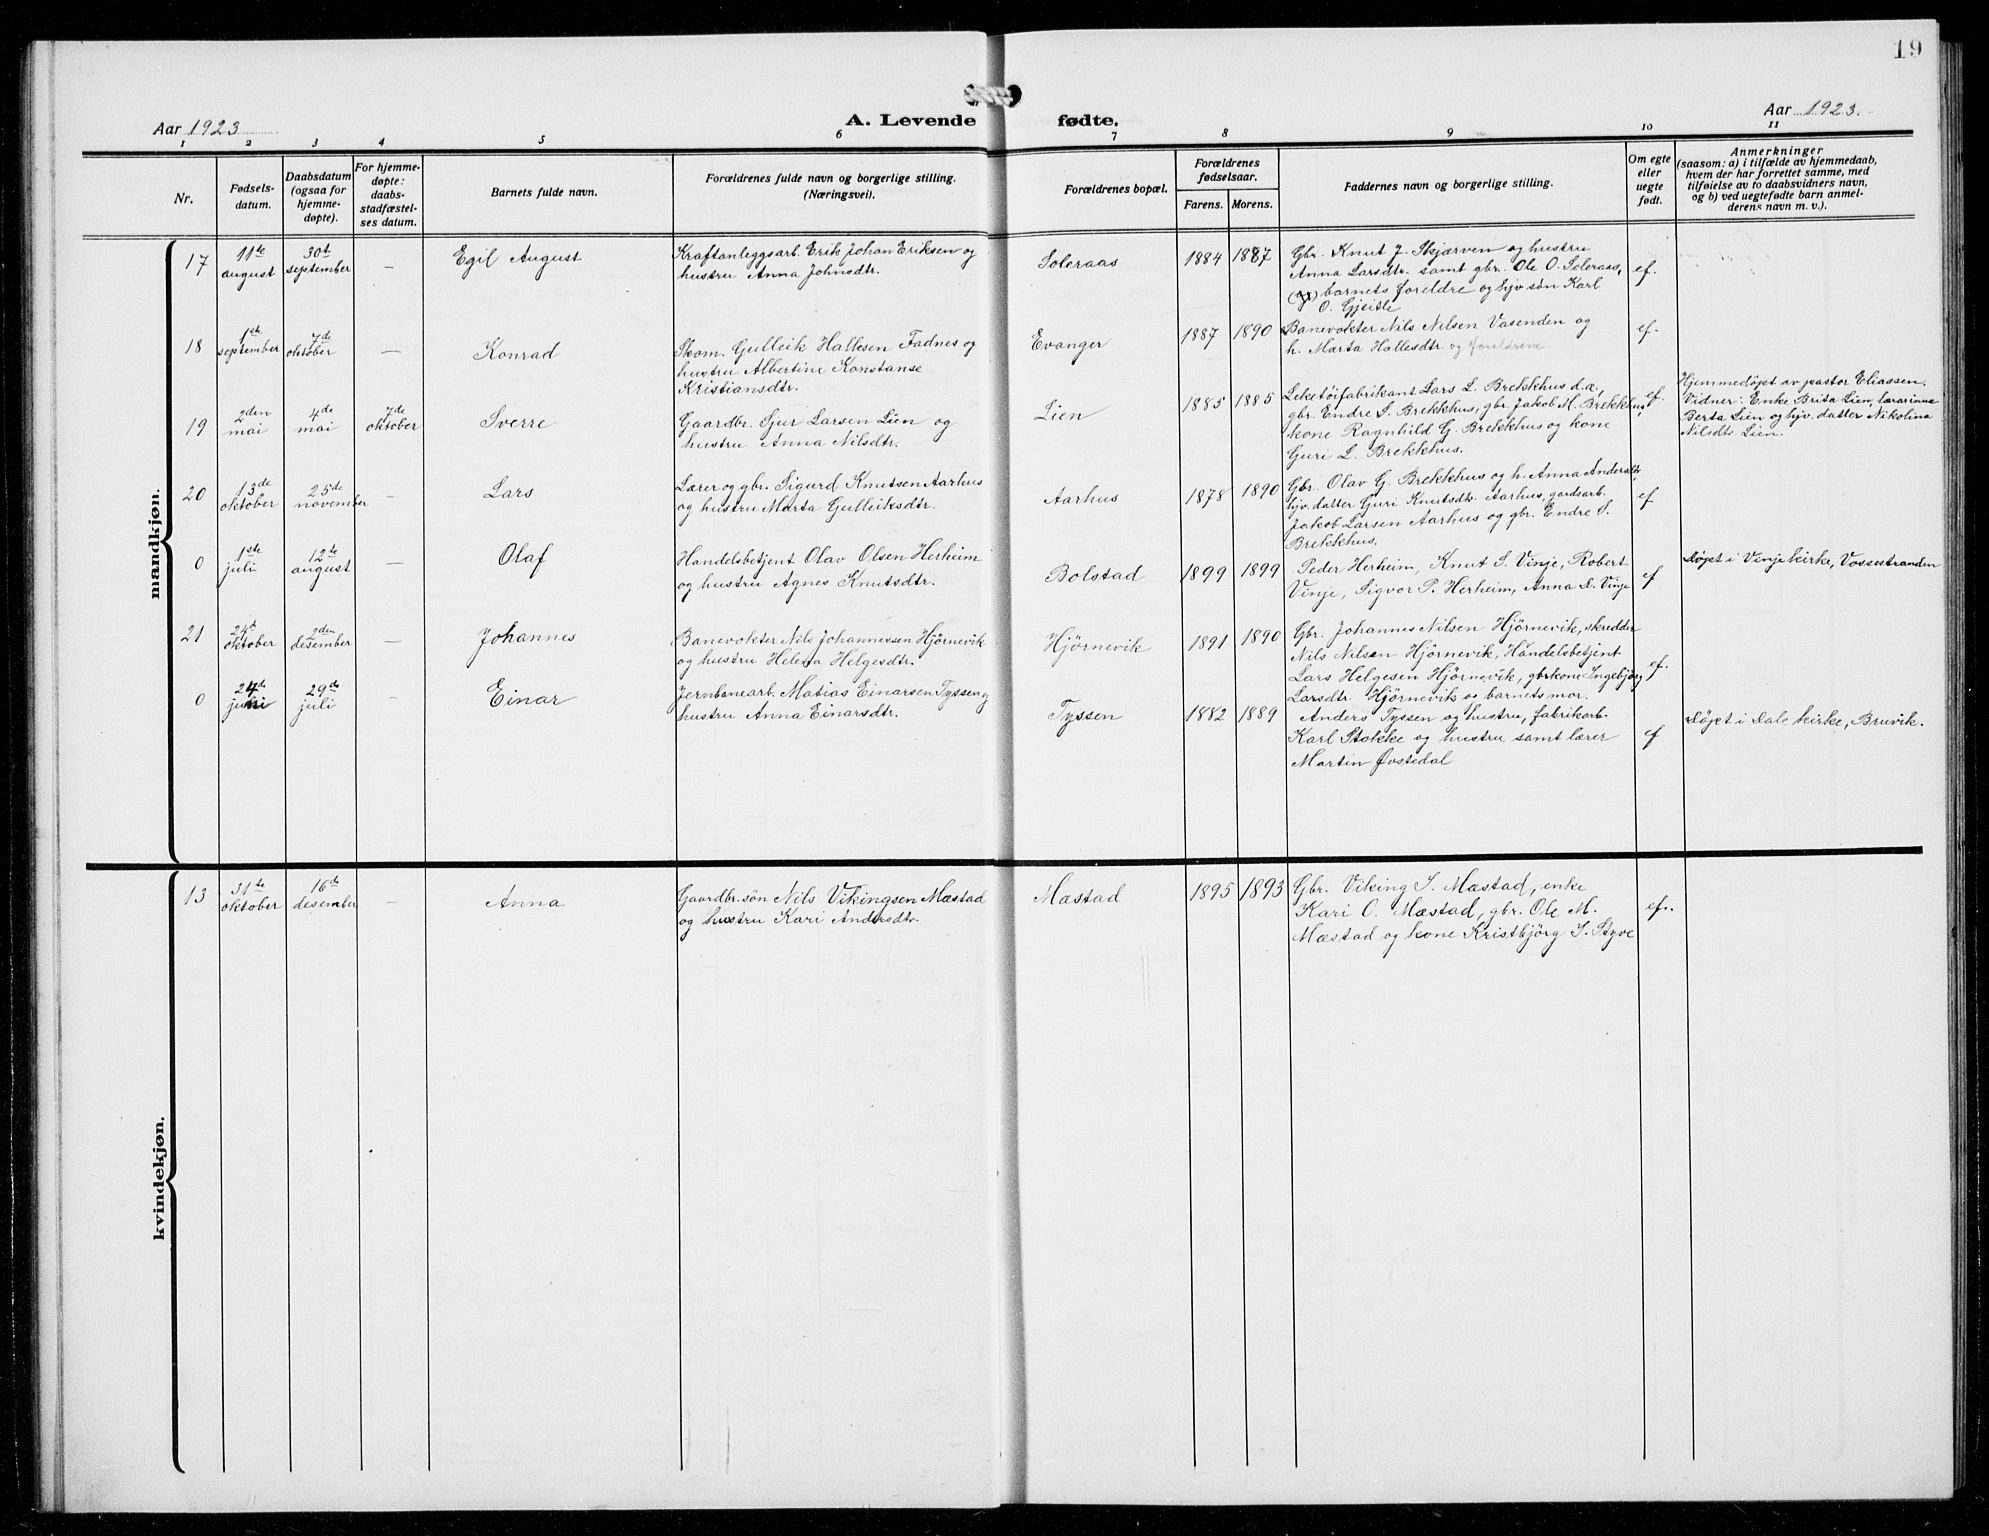 19
Aar 1923
A. Levende fødte.
Aar 1923.
1 2 3 4 5 6 7 8 9 10 11
Nr.
Fødsels-
datum.
Daabsdatum
(ogsaa for
hjemme-
døpte).
For hjemme-
døpte:
daabs-
stadfæstel-
ses datum.
Barnets fulde navn.
Forældrenes fulde navn og borgerlige stilling.
(Næringsvei).
Forældrenes bopæl.
Forældrenes
fødselsaar.
Farens. Morens.
Faddernes navn og borgerlige stilling.
Om egte
eller
uegte
født.
Anmerkninger
(saasom: a) i tilfælde av hjemmedaab,
hvem der har forrettet samme, med
tilføielse av to daabsvidners navn,
og b) ved uegtefødte barn anmel-
derens navn m. v.).
mandkjøn.
17
11te
august
30te
september
—
Egil August
Kraftanleggsarb. Erik Johan Eriksen og
hustru Anna Johnsdtr.
Soleraas
1884 1887
Gbr. Knut J. Skjærven og hustru
Anna Larsdtr. samt gbr. Ole O. Soleraas,
(og) barnets foreldre og hjv søn Karl
O. Gjeitle
ef.
18
1ste
september
7de
oktober
—
Konrad
Skom. Gulleik Hallesen Fadnes og
hustru Albertine Konstanse
Kristiansdtr.
Evanger
1887 1890
Banevokter Nils Nilsen Vasenden og
h. Marta Hallesdtr. og foreldrene
ef.
19
2den
mai
4de
mai
7de
oktober
Sverre
Gaardbr. Sjur Larsen Lien og
hustru Anna Nilsdtr.
Lien
1885 1885
Leketøifabrikant Lars L. Brekkhus d.æ,
gbr. Endre S. Brekkhus, gbr. Jakob M. Brekkhus,
kone Ragnhild G. Brekkhus og kone
Guri L. Brekkhus.
ef
Hjemmedøpt av pastor Eliassen.
Vidner: Enke Brita Lien, lærarinna
Berta Lien og hjv. datter Nikolina
Nilsdtr Lien.
20
13de
oktober
25de
november
—
Lars
Lærer og gbr. Sigurd Knutsen Aarhus
og hustru Marta Gulleiksdtr.
Aarhus
1878 1890
Gbr. Olav G. Brekkhus og h. Anna Andersdtr,
hjv. datter Guri Knutsdtr Aarhus, gardsarb.
Jakob Larsen Aarhus og gbr. Endre S.
Brekkhus.
ef
0
1ste
juli
12te
august
—
Olaf
Handelsbetjent Olav Olsen Herheim
og hustru Agnes Knutsdtr.
Bolstad
1899 1899
Peder Herheim, Knut S. Vinje, Robert
Vinje, Sigvor P. Herheim, Anna D. Vinje
ef
Døpt i Vinje kirke, Vossestranden
21
24de
oktober
2den
desember
—
Johannes
Banevokter Nils Johannessen Hjørnevik
og hustru Helena Helgesdtr.
Hjørnevik
1891 1890
Gbr. Johannes Nilsen Hjørnevik, skredder
Nils Nilsen Hjørnevik, Handelsbetjent
Lars Helgesen Hjørnevik, gbrkone Ingebjørg
Larsdtr. Hjørnevik og barnets mor.
ef.
0
juni
29de
juli
—
Einar
Jernbanearb. Matias Einarsen Tyssen og
hustru Anna Einarsdtr.
Tyssen
1882 1889
Anders Tyssen og hustru, fabrikarb.
Karl Stokke og hustru samt lærer
Martin Øvstedal
ef
Døpt i Dale kirke, Bruvik.
kvindekjøn.
13
31te
oktober
16de
desember
—
Anna
Gaardbr.søn Nils Vikingsen Mæstad
og hustru Kari Andersdtr.
Mæstad
1895 1893
Gbr. Viking S. Mæstad, enke
Kari O. Mæstad, gbr. Ole M.
Mæstad og kone Kristbjørg S. Styve
ef.